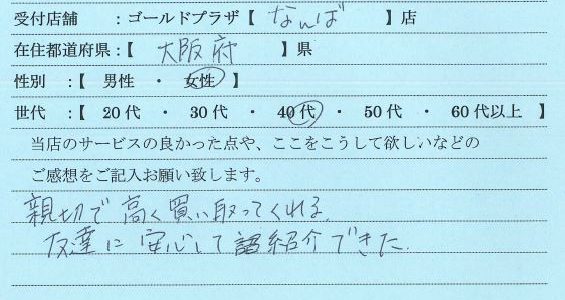 受付店舗　：ゴールドプラザ【　なんば　】店
在住都道府県：【　大阪府　】県
性別　：【　男性　・　女性　】
世代　：【　20代　・　30代　・　40代　・　50代　・　60代以上　】
当店のサービスの良かった点や、ここをこうして欲しいなどの
ご感想をご記入お願い致します。
親切で高く買い取ってくれる。
友達に安心して紹介できた。